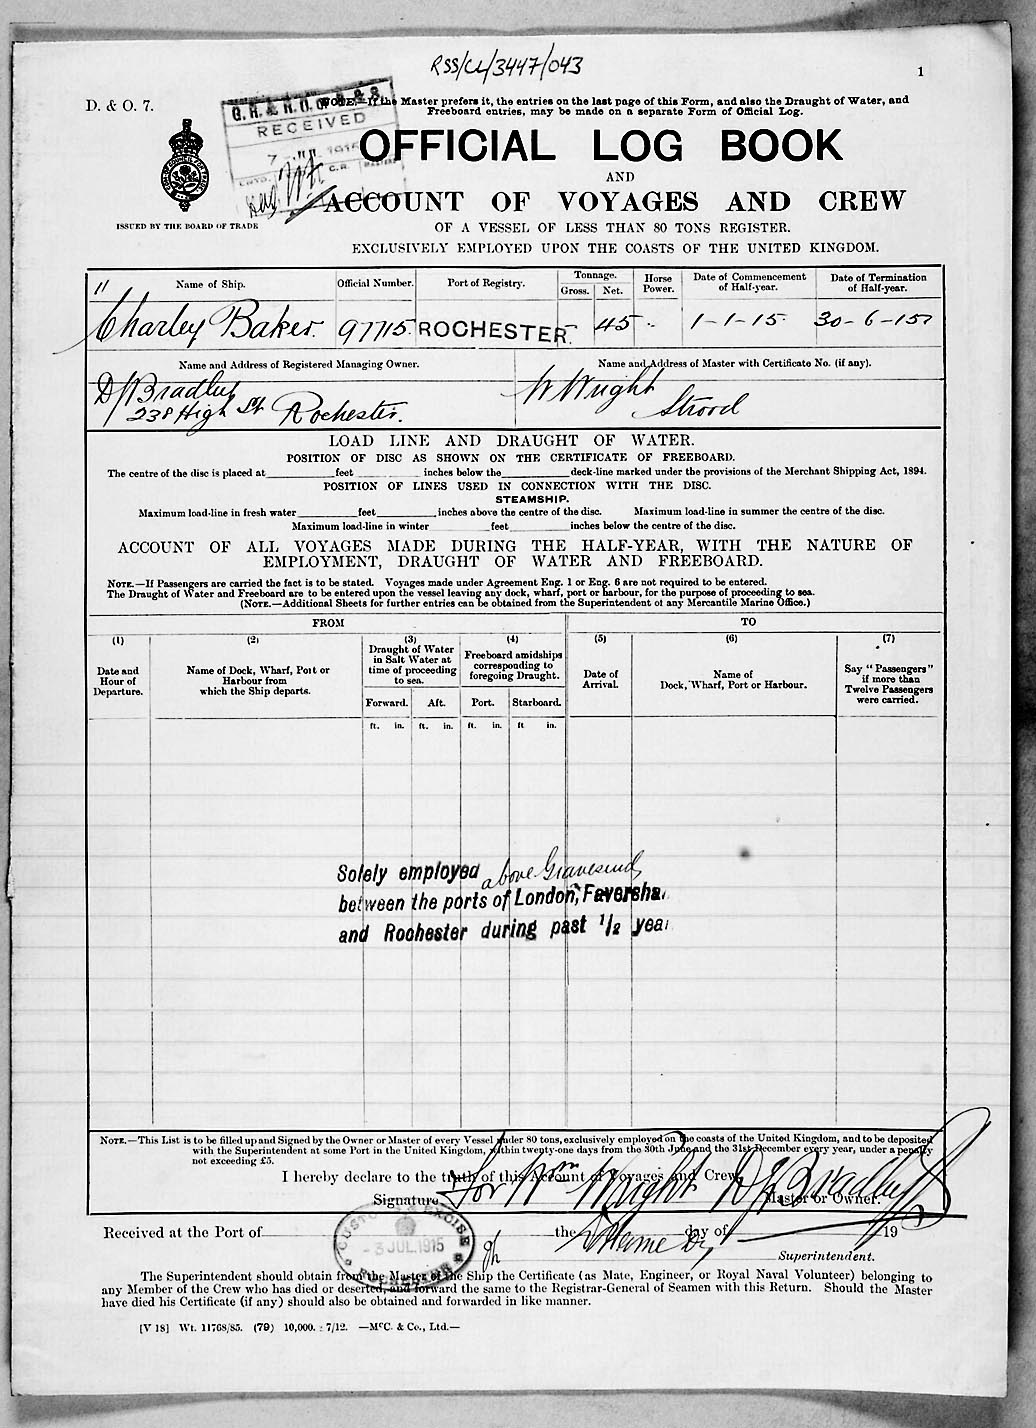 RSS/CL/3447/043
1
D. & O. 7.
NOTE.—If the Master prefers it, the entries on the last page of this Form, and also the Draught of Water, and
Freeboard entries, may be made on a separate Form of Official Log.
RECEIVED
OFFICIAL LOG BOOK
AND
ACCOUNT OF VOYAGES AND CREW
ISSUED BY THE BOARD OF TRADE
OF A VESSEL OF LESS THAN 80 TONS REGISTER.
EXCLUSIVELY EMPLOYED UPON THE COASTS OF THE UNITED KINGDOM.
11
Name of Ship. Official Number. Port of Registry. Tonnage. Gross. Net. Horse Power. Date of Commencement of Half-year. Date of Termination of Half-year.
Charley Baker. 97715 ROCHESTER 45 1-1-15 30-6-15
Name and Address of Registered Managing Owner. Name and Address of Master with Certificate No. (if any).
W Wright
238 High St Rochester. Strood
LOAD LINE AND DRAUGHT OF WATER.
POSITION OF DISC AS SHOWN ON THE CERTIFICATE OF FREEBOARD.
The centre of the disc is placed at feet inches below the deck-line marked under the provisions of the Merchant Shipping Act, 1894.
POSITION OF LINES USED IN CONNECTION WITH THE DISC.
STEAMSHIP.
Maximum load-line in fresh water feet inches above the centre of the disc. Maximum load-line in summer the centre of the disc.
Maximum load-line in winter feet inches below the centre of the disc.
ACCOUNT OF ALL VOYAGES MADE DURING THE HALF-YEAR, WITH THE NATURE OF
EMPLOYMENT, DRAUGHT OF WATER AND FREEBOARD.
NOTE.—If Passengers are carried the fact is to be stated. Voyages made under Agreement Eng. 1 or Eng. 6 are not required to be entered.
The Draught of Water and Freeboard are to be entered upon the vessel leaving any dock, wharf, port or harbour, for the purpose of proceeding to sea.
(NOTE.—Additional Sheets for further entries can be obtained from the Superintendent of any Mercantile Marine Office.)
FROM TO
(1) (2) (3) (4) (5) (6) (7)
Date and Hour of Departure. Name of Dock, Wharf, Port or Harbour from which the Ship departs. Draught of Water in Salt Water at time of proceeding to sea. Freeboard amidships corresponding to foregoing Draught. Date of Arrival. Name of Dock, Wharf, Port or Harbour. Say "Passengers" if more than Twelve Passengers were carried.
Forward. Aft. Port. Starboard.
ft. in. ft. in. ft. in. ft in.
Solely employed above Gravesend
between the ports of London, Faversha
and Rochester during past 1/2 year
NOTE.—This List is to be filled up and Signed by the Owner or Master of every Vessel under 80 tons, exclusively employed on the coasts of the United Kingdom, and to be deposited
with the Superintendent at some Port in the United Kingdom, within twenty-one days from the 30th June and the 31st December every year, under a penalty
not exceeding £5.
I hereby declare to the truth of this Account of Voyages and Crew,
Signature For Wm Wright Master or Owner.
Received at the Port of the day of 19
CUSTOMS & EXCISE
3 JUL 1915
Superintendent.
The Superintendent should obtain from the Master of the Ship the Certificate (as Mate, Engineer, or Royal Naval Volunteer) belonging to
any Member of the Crew who has died or deserted, and forward the same to the Registrar-General of Seamen with this Return. Should the Master
have died his Certificate (if any) should also be obtained and forwarded in like manner.
[V 18] Wt. 11768/85. (79) 10,000. 7/12. —McC. & Co., Ltd.—